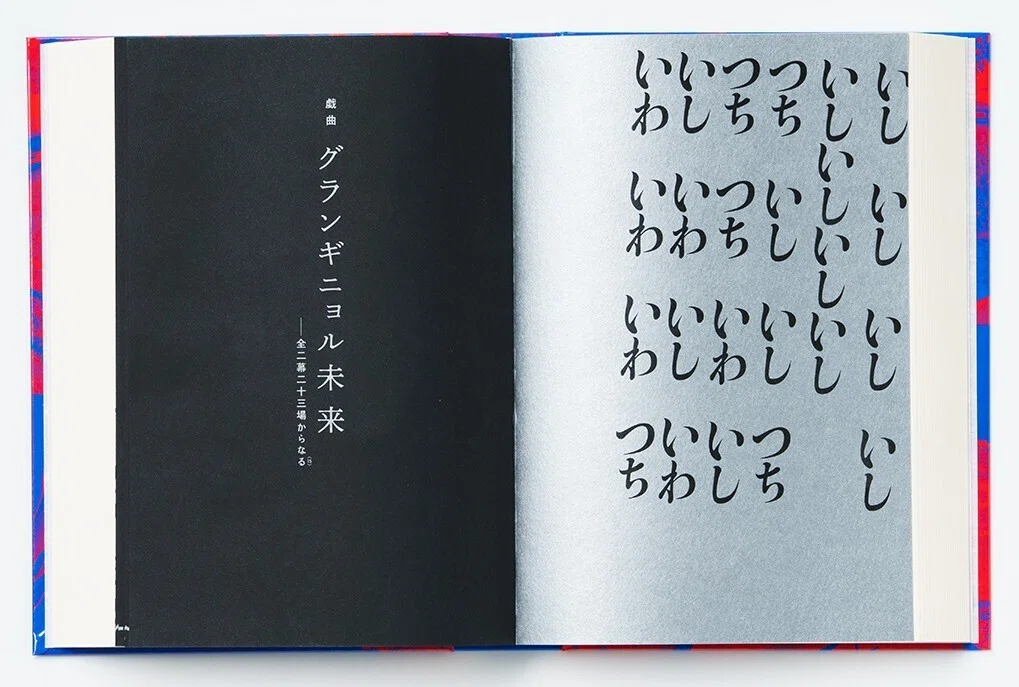 いし いし いし いし
いしいしいしいし
つち いし いし つち
つち つち いわ いし
いし いわ いし いわ
いわ いわ いわ つち
戯曲 グランギニョル未来
――全二幕二十三場からなる